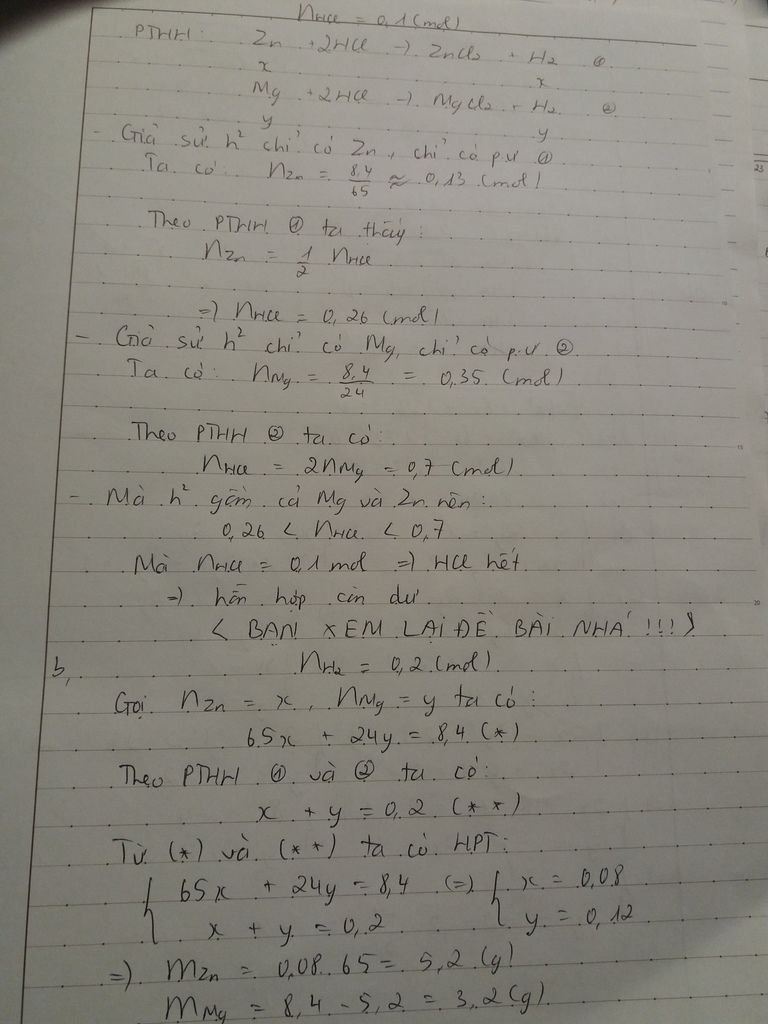 nHCl = 0,1 (mol)
PTHH: Zn + 2HCl → ZnCl2 + H2 ①
x x
Mg + 2HCl → MgCl2 + H2 ②
y y
- Giả sử h² chỉ có Zn, chỉ có p.ư ①
Ta có: nZn = 8,4/65 ≈ 0,13 (mol)
Theo PTHH ① ta thấy:
nZn = 1/2 nHCl
=) nHCl = 0,26 (mol)
- Giả sử h² chỉ có Mg, chỉ có p.ư ②
Ta có: nMg = 8,4/24 = 0,35 (mol)
Theo PTHH ② ta có:
nHCl = 2nMg = 0,7 (mol)
- Mà h² gồm cả Mg và Zn nên:
0,26 < nHCl < 0,7
Mà nHCl = 0,1 mol =) HCl hết
=) hỗn hợp còn dư
< BẠN XEM LẠI ĐỀ BÀI NHÁ !!! >
b, nH2 = 0,2 (mol)
Gọi nZn = x, nMg = y ta có:
65x + 24y = 8,4 (*)
Theo PTHH ① và ② ta có:
x + y = 0,2 (**)
Từ (*) và (**) ta có HPT:
{ 65x + 24y = 8,4 (=) { x = 0,08
x + y = 0,2 y = 0,12
=) mZn = 0,08 . 65 = 5,2 (g)
mMg = 8,4 - 5,2 = 3,2 (g)